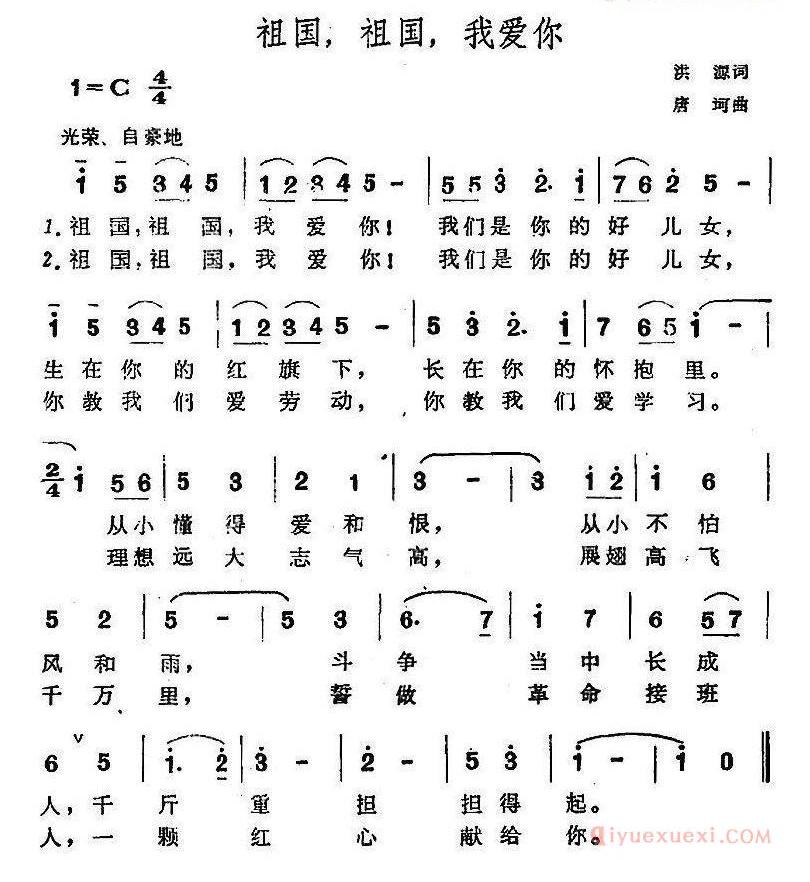 祖国，祖国，我爱你
1=C 4/4
洪 源词
唐 珂曲
光荣、自豪地
1 5 3 4 5 | 1 2 3 4 5 - | 5 5 3 2. 1 | 7 6 2 5 - |
1.祖 国，祖 国，我 爱 你！ 我们是 你 的 好 儿 女，
2.祖 国，祖 国，我 爱 你！ 我们是 你 的 好 儿 女，
1 5 3 4 5 | 1 2 3 4 5 - | 5 3 2. 1 | 7 6 5 1 - |
生 在 你 的 红 旗 下， 长 在 你 的 怀 抱 里。
你 教 我 们 爱 劳 动， 你 教 我 们 爱 学 习。
2/4 1 5 6 | 5 3 | 2 1 | 3 - | 3 1 2 | 1 6 |
从小 懂 得 爱 和 恨， 从小 不 怕
理想 远 大 志 气 高， 展翅 高 飞
5 2 | 5 - | 5 3 | 6. 7 | 1 7 | 6 5 7 |
风 和 雨， 斗 争 当 中 长 成
千 万 里， 誓 做 革 命 接 班
6 v 5 | 1. 2 | 3 - | 2 - | 5 3 | 1 - | 1 0 ‖
人，千 斤 重 担 担 得 起。
人，一 颗 红 心 献 给 你。
qiyuexuexi.COM